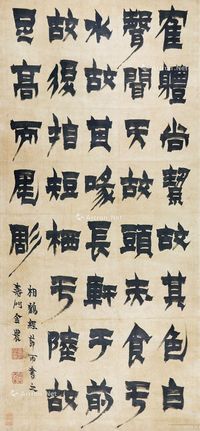 隺體尚絜故其色白
聲聞天故頭赤食亏
水故其喙長軒于前
故後指短栖亏陸故
足高而尾彫
相鶴經節而書之
壽門金農